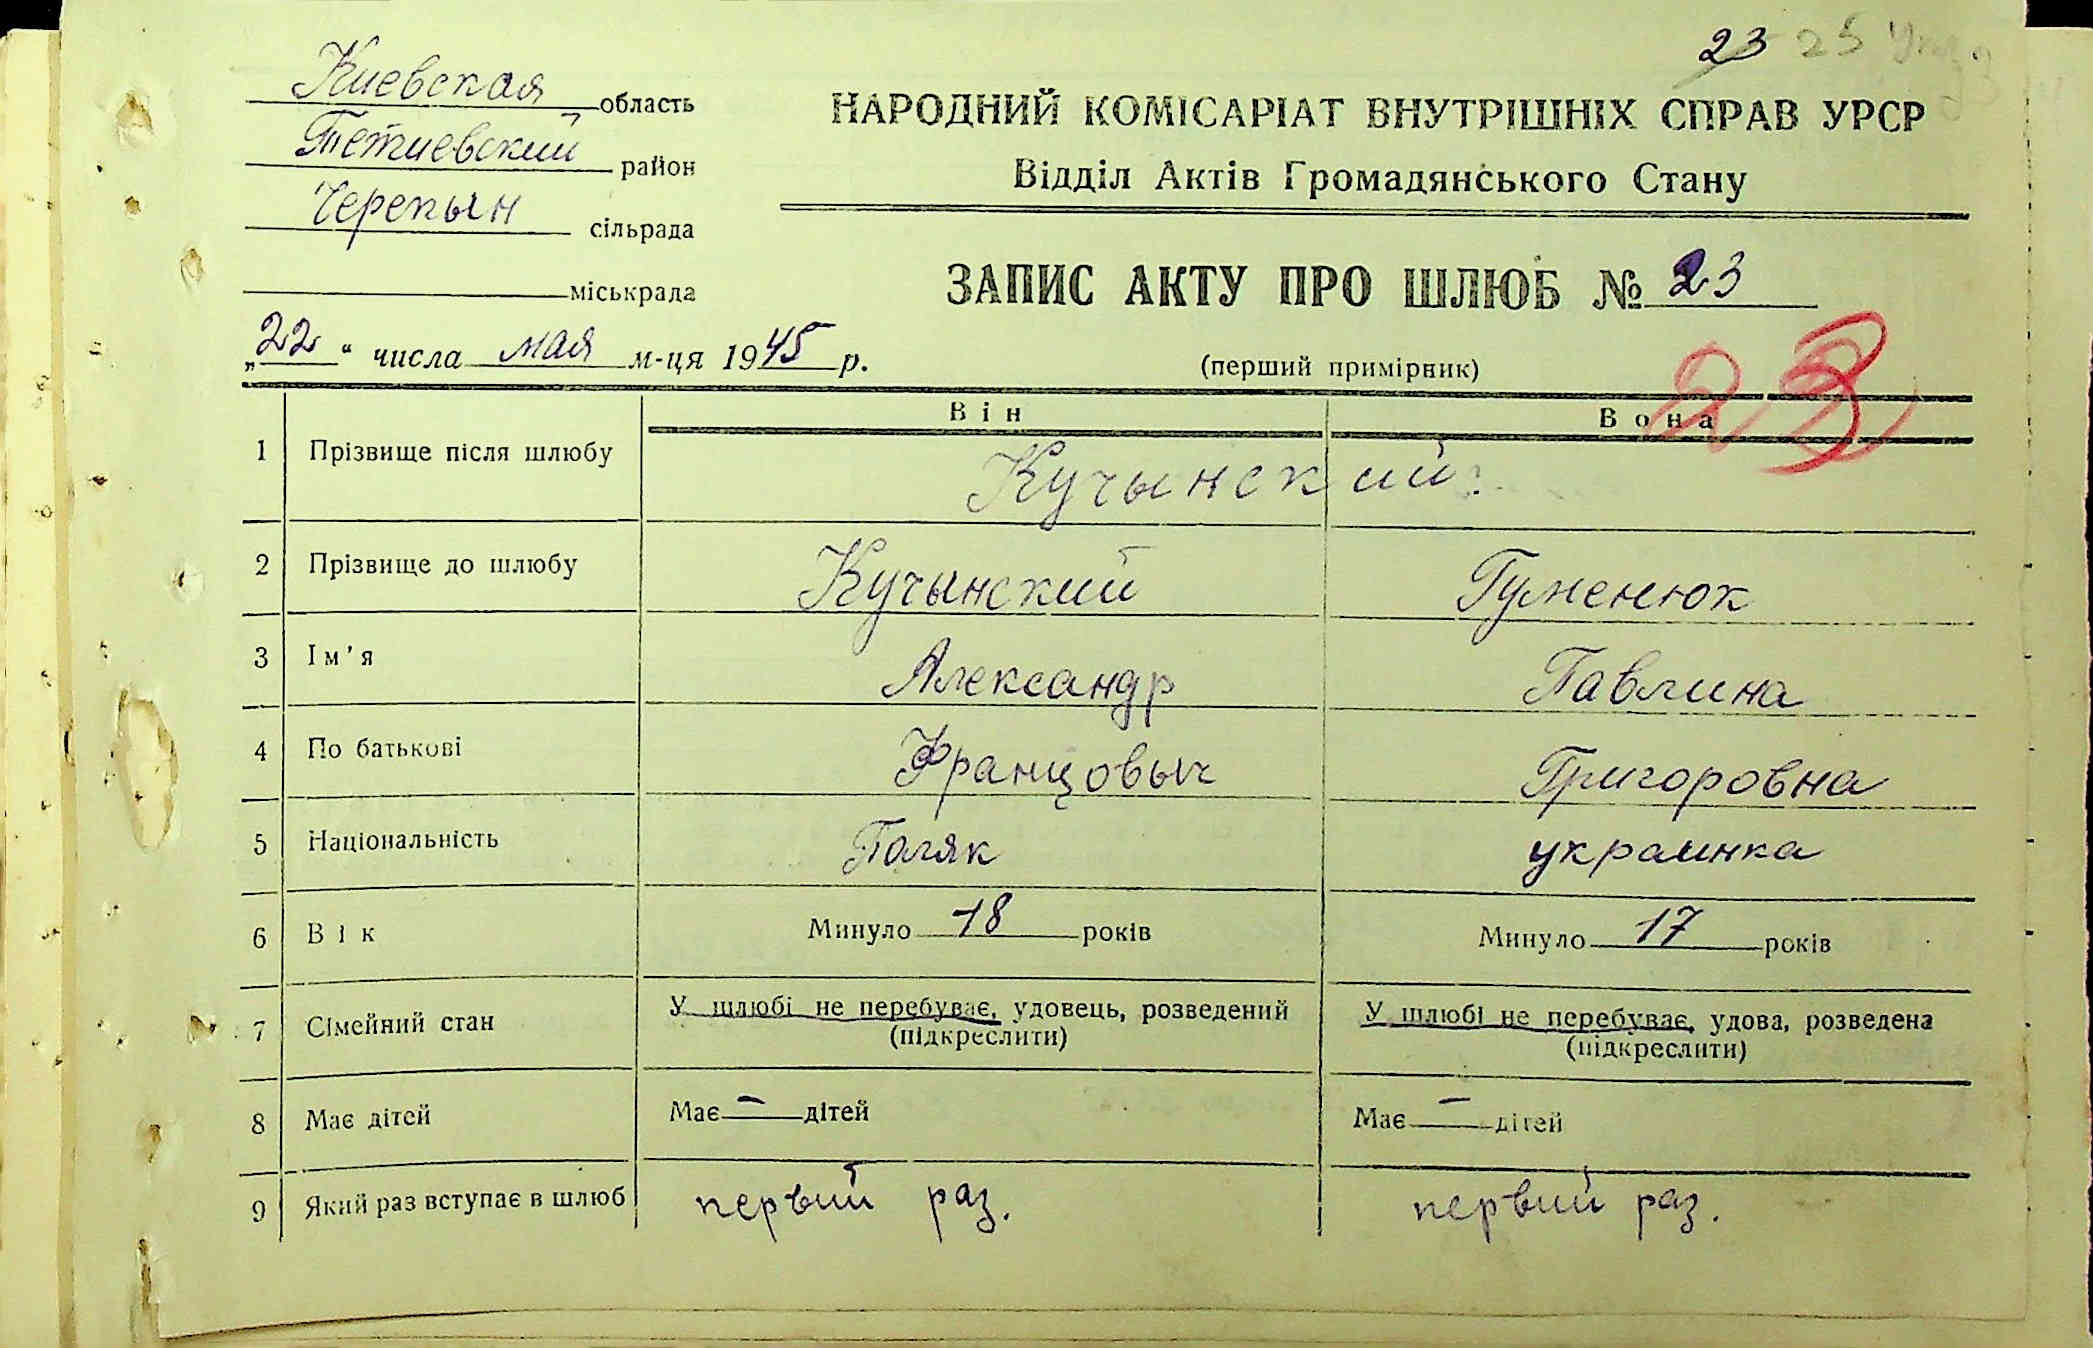 23 25
Киевская область
Тетиевский район
Черепын сільрада
міськрада
„22“ числа мая м-ця 1945 р.
НАРОДНИЙ КОМІСАРІАТ ВНУТРІШНІХ СПРАВ УРСР
Відділ Актів Громадянського Стану
ЗАПИС АКТУ ПРО ШЛЮБ № 23
(перший примірник)
23
Він Вона
1 Прізвище після шлюбу Кучынский
2 Прізвище до шлюбу Кучынский Гуменюк
3 Ім'я Александр Павлина
4 По батькові Францовыч Григоровна
5 Національність Поляк украинка
6 Вік Минуло 18 років Минуло 17 років
7 Сімейний стан У шлюбі не перебуває, удовець, розведений У шлюбі не перебуває, удова, розведена
(підкреслити) (підкреслити)
8 Має дітей Має – дітей Має – дітей
9 Який раз вступає в шлюб первий раз. первий раз.